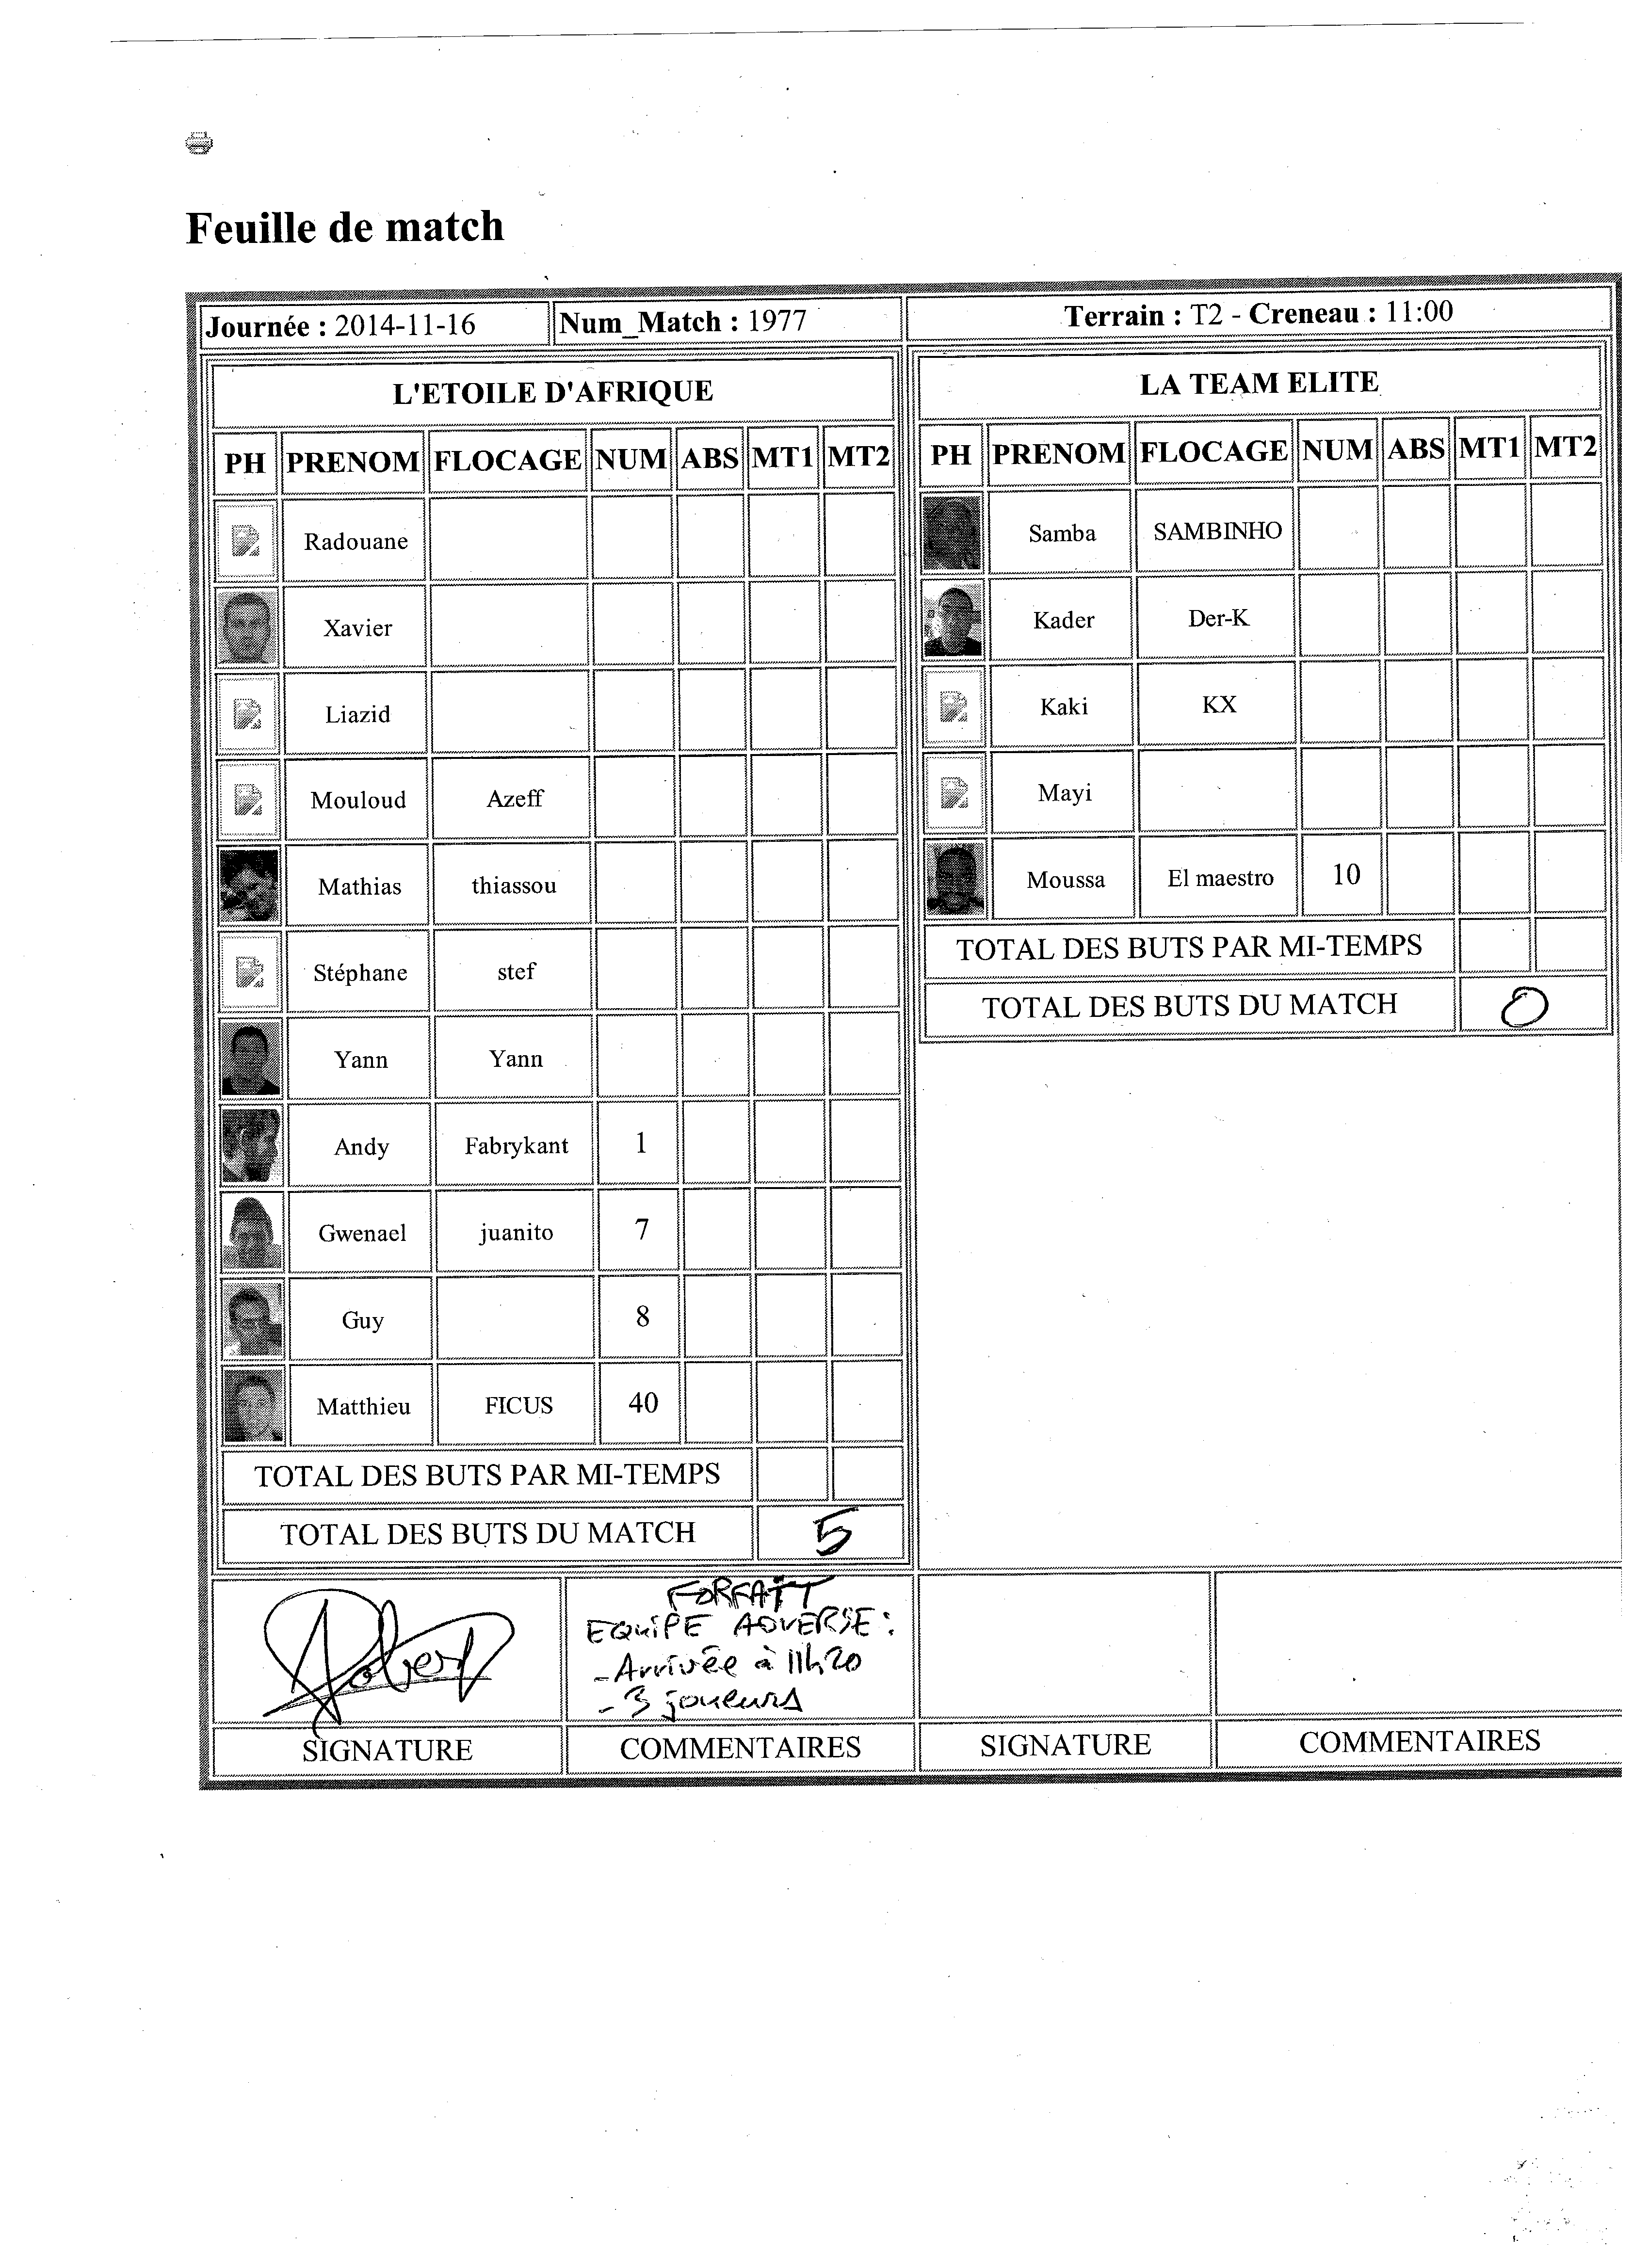 Feuille de match
Journée : 2014-11-16 Num_Match : 1977 Terrain : T2 - Creneau : 11:00
L'ETOILE D'AFRIQUE
PH PRENOM FLOCAGE NUM ABS MT1 MT2
Radouane
Xavier
Liazid
Mouloud Azeff
Mathias thiassou
Stéphane stef
Yann Yann
Andy Fabrykant 1
Gwenael juanito 7
Guy 8
Matthieu FICUS 40
TOTAL DES BUTS PAR MI-TEMPS
TOTAL DES BUTS DU MATCH 5
LA TEAM ELITE
PH PRENOM FLOCAGE NUM ABS MT1 MT2
Samba SAMBINHO
Kader Der-K
Kaki KX
Mayi
Moussa El maestro 10
TOTAL DES BUTS PAR MI-TEMPS
TOTAL DES BUTS DU MATCH 0
FORFAIT
EQUIPE ADVERSE :
- Arrivée à 11h20
- 3 joueurs
SIGNATURE COMMENTAIRES SIGNATURE COMMENTAIRES